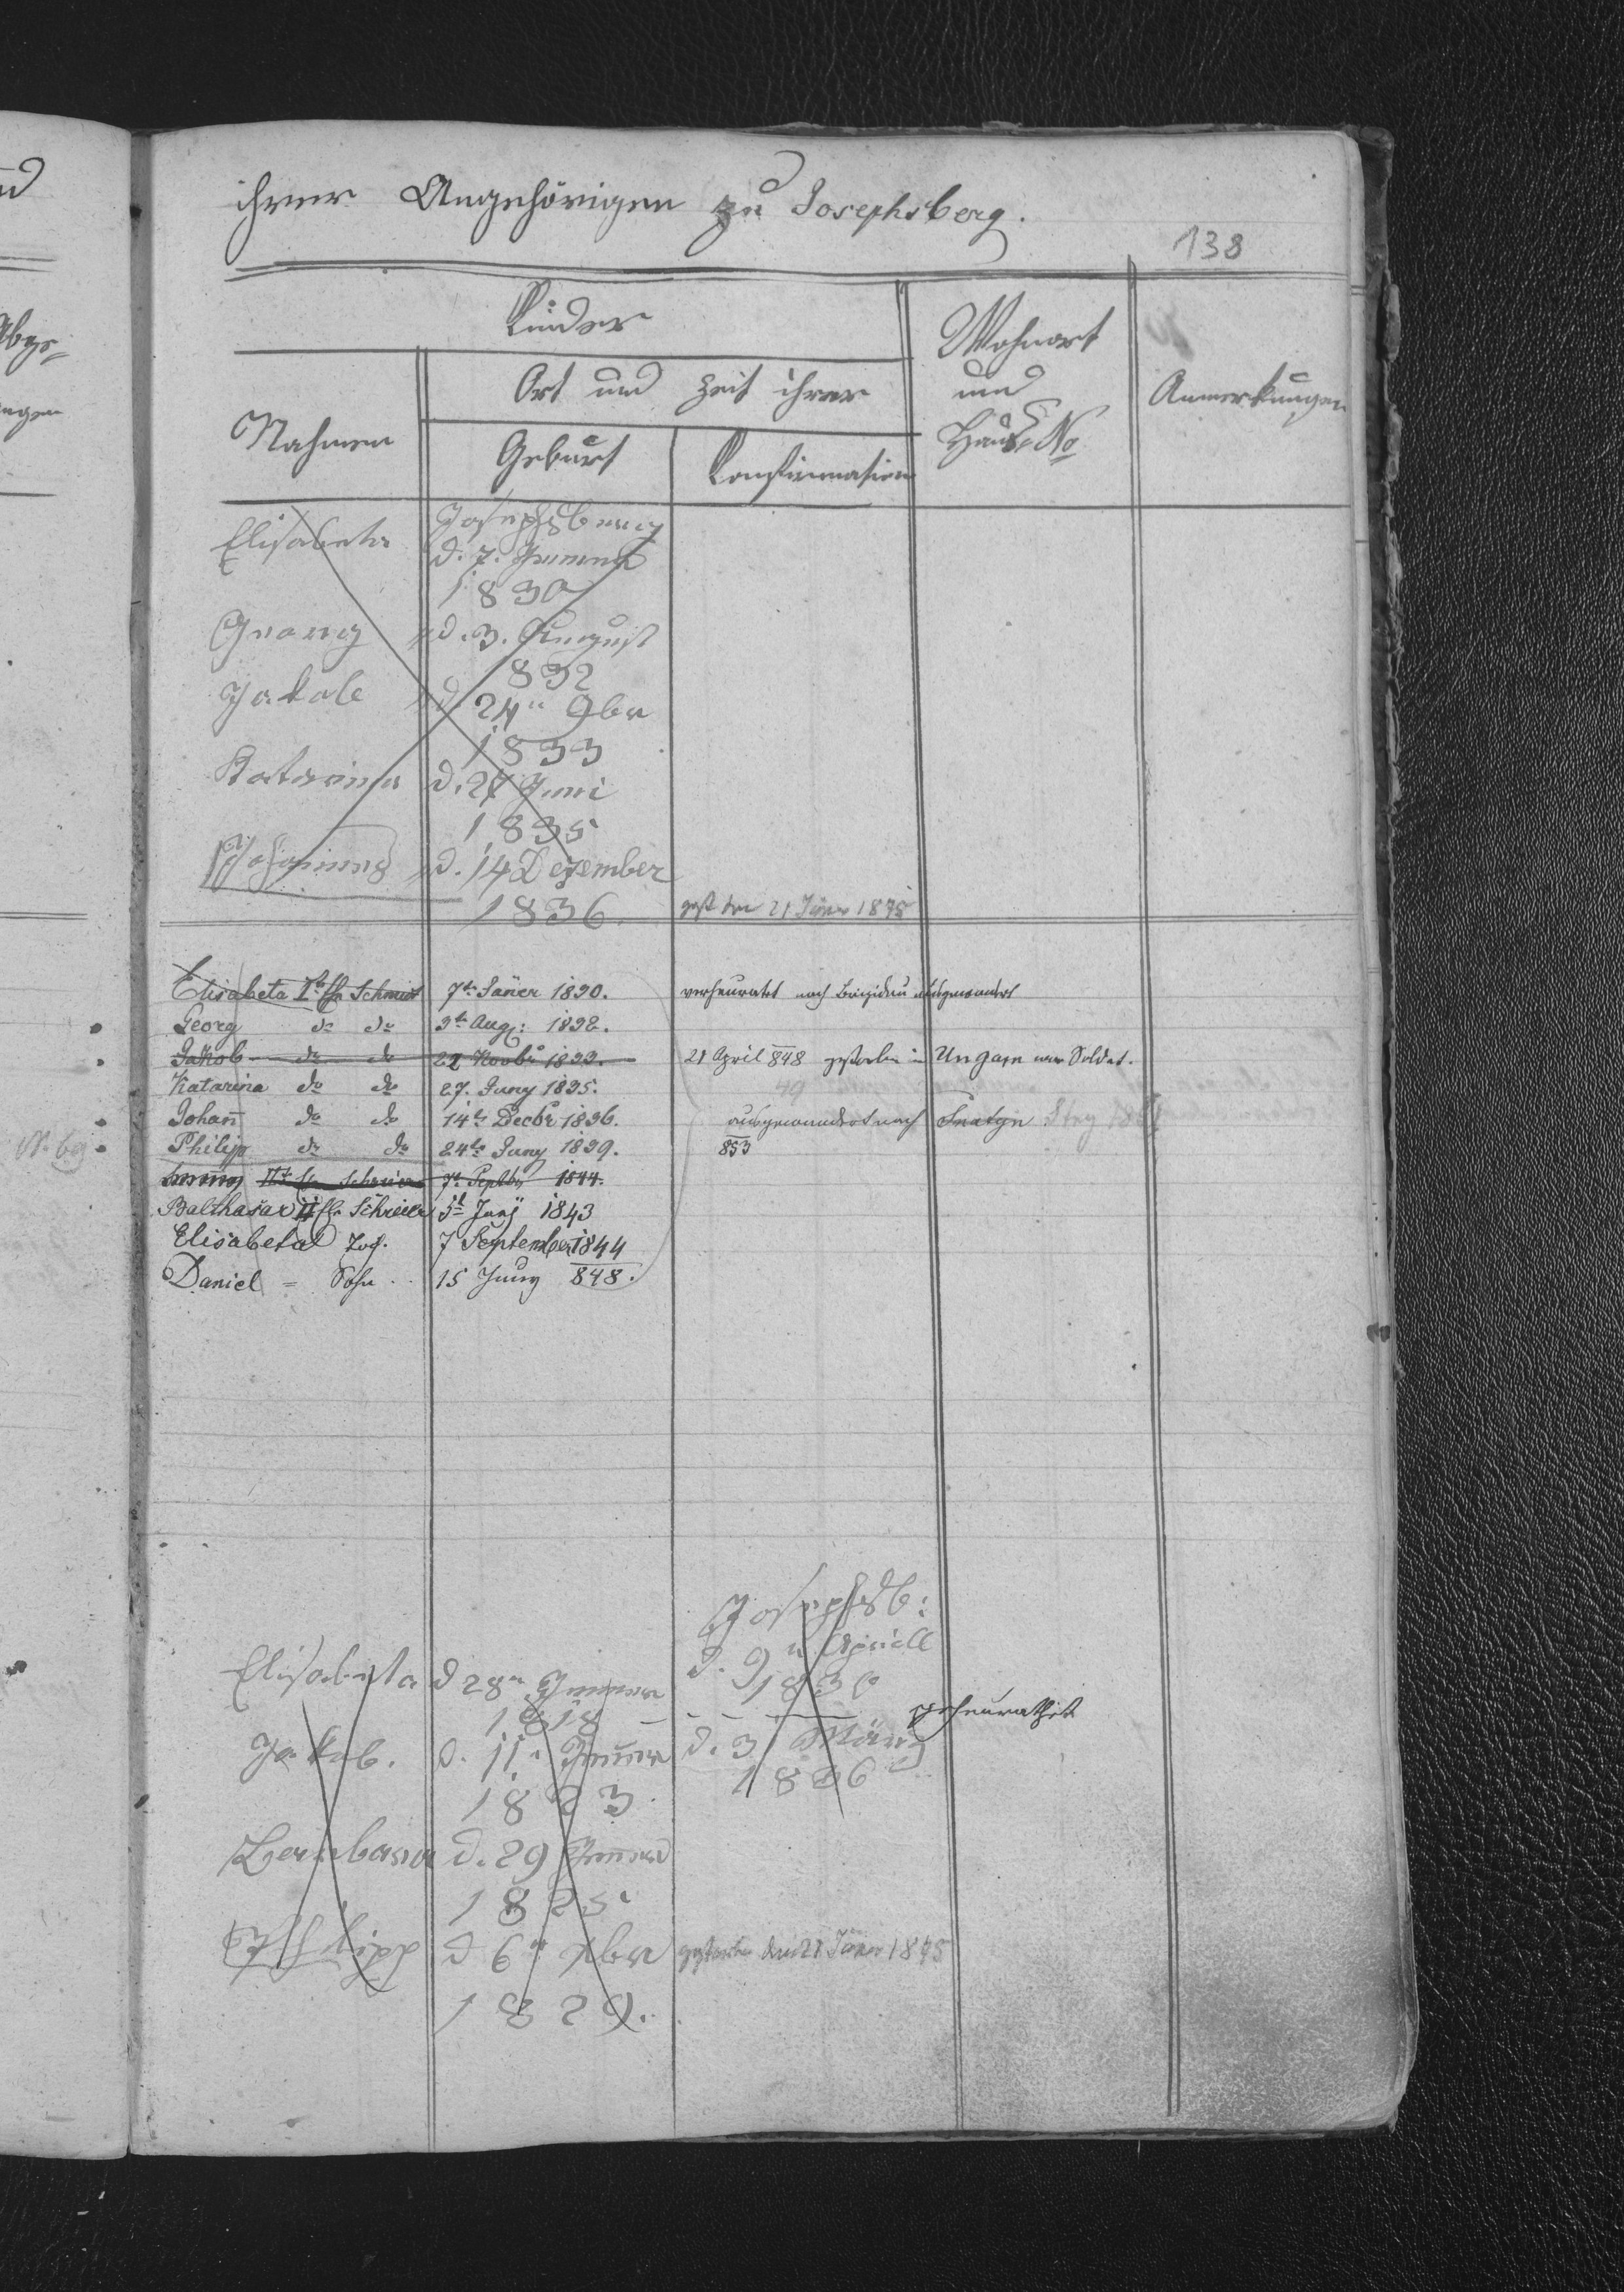 ihrer Angehörigen zu Josephsberg.
138
Kinder
Wohnort
und
Hauß No
Anmerkungen
Nahmen
Ort und Zeit ihrer
Geburt
Konfirmation
Elisabeta
Josephsberg
d. 7. Jenner
1830
Georg
d. 3. August
832
Jakob
d. 24" 9br
1833
Katarina
d. 27 Juni
1835
Johannes
d. 14 Dezember
1836.
gest den 21 Jäner 1875
Elisabeta Ite Ehe Schmidt 7te Jäner 1830. verheuratet nach Brigidau ausgewandert
Georg do do 3te Aug: 1832.
Jakob do do 22 Novbr 1833. 21 April 848 gestorben in Ungarn war Soldat.
49
Katarina do do 27. Juny 1835.
Johann do do 14te Decbr 1836. ausgewandert nach Sniatyn
Philipp do do 24te Juny 1839. 853
IIte Ehe Schreier 7te Septbr 1844.
Balthasar II Ehe Schreier 5te Junÿ 1843
Elisabeta 7 September 1844
Daniel = Sohn 15 Juny 848.
Josephsb:
Elisabeta d 28n Jenner d. 9n Aprill
1818 1830
geheurathet
Jakob. d. 11n Jenner d. 31 März
1823 1836
d. 29 Jenner
1825
Philipp d 6n Xbr gestorben den 21 Jäner 1875
1829.